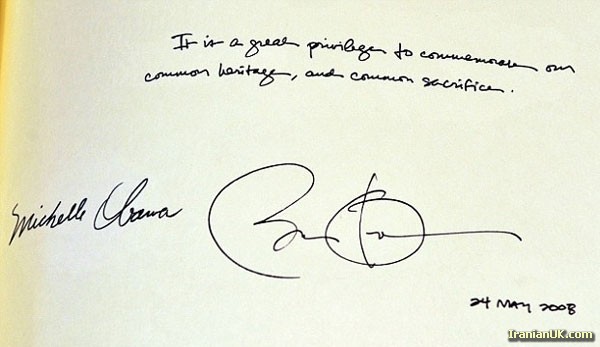 It is a great privilege to commemorate our
common heritage, and common sacrifice.
Michelle Obama
Barack Obama
24 MAY 2008
IranianUK.com